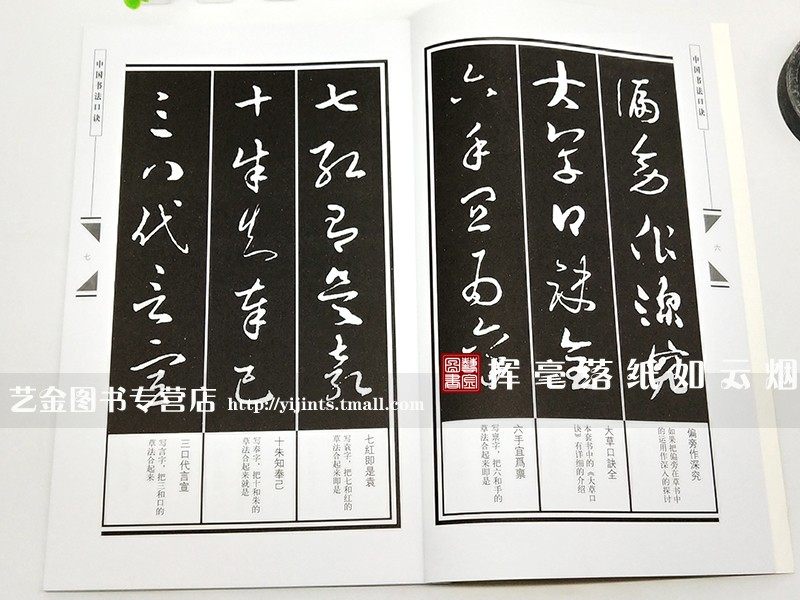 中国书法口诀
六
偏旁作深究
大草口訣全
六手宜爲禀
偏旁作深究
如果把偏旁在草书中
的运用作深入的探讨
大草口訣全
本套书中的《大草口
诀》有详细的介绍
六手宜爲禀
草法合起来即是
中国书法口诀
七
七紅即是袁
十朱知奉己
三口代言宣
七紅即是袁
写袁字，把七和红的
草法合起来即是
十朱知奉己
写奉字，把十和朱的
草法合起来就是
三口代言宣
写言字，把三和口的
草法合起来
艺金图书专营店 http://yijints.tmall.com
挥毫落纸如云烟